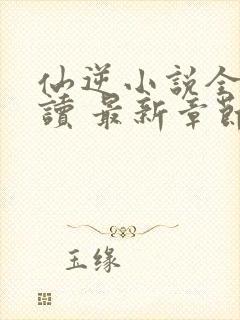 仙逆小説全
讀 最新章節
玉缘